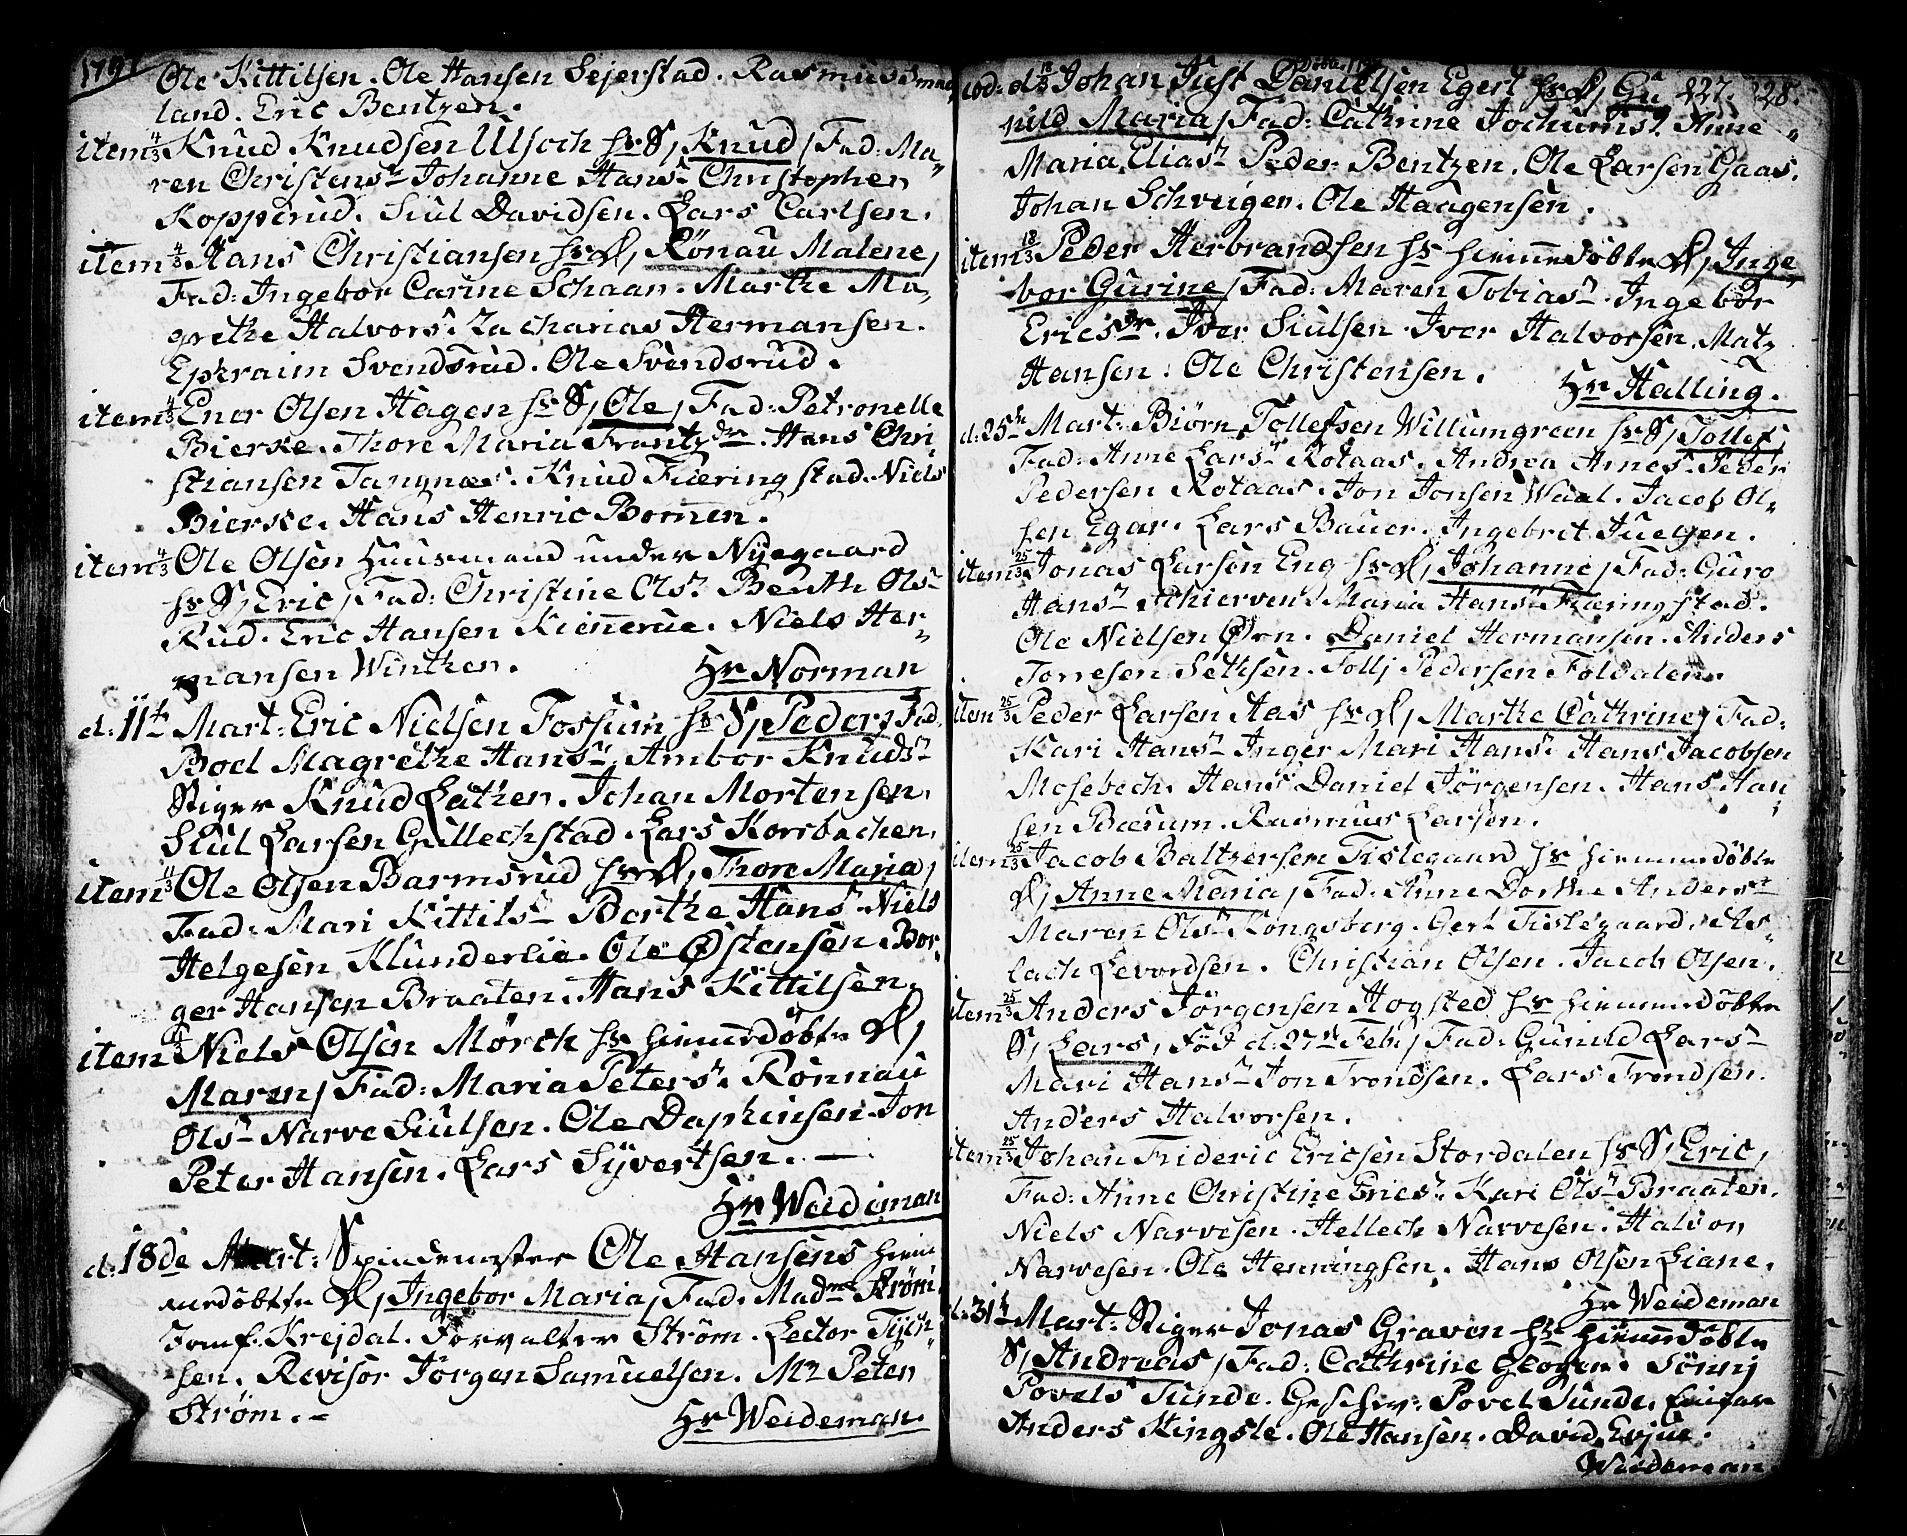 1791
Ole Kittilsen. Ole Hansen Sejerstad. Rasmus Smed
land. Eric Bentzen.
item 4/3 Knud Knudsen Ulsoch hs S, Knud, Fad: Ma-
ren Christensr Johanne Hansr Christopher
Kopperud. Siul Davidsen. Lars Carlsen.
item 4/3 Hans Christiansen hs D, Rönau Malene,
Fad: Ingebor Carine Schaan. Marthe Ma-
grethe Halvorsr. Zacharias Hermansen.
Ephraim Svendsrud. Ole Svendsrud.
item 4/3 Ener Olsen Hagen hs S, Ole, Fad: Petronelle
Bierke. Thore Maria Frantzdr. Hans Chri
stiansen Tangnæs. Knud Fiæringstad. Niels
Bierke. Hans Henric Bornen.
item 4/3 Ole Olsen Huusmand under Nyegaard
hs S, Eric, Fad: Christine Olsr Benth Ols-
Rud. Eric Hansen Kiennerue. Niels Her-
mansen Winther.
Hr Norman
d. 11te Mart: Eric Nielsen Fossum hs S, Peder, Fad:
Boel Magrethe Hansr, Ambor Knudsr
Stiger Knud Lather. Johan Mortensen.
Siul Larsen Gullechstad. Lars Korsbechen.
item Ole Olsen Barmsrud hs D, Thore Maria,
Fad: Mari Kittilsr Berthe Hansr Niels
Helgesen Klunderlie. Ole Østensen. Bor-
ger Hansen Braaten. Hans Kittilsen.
item Niels Olsen Mörch hs hiemmedöbte D,
Maren, Fad: Maria Petersr. Rönnau
Olsr Narve Siulsen. Ole Daphinsen. Jon
Peter Hansen. Lars Syvertsen. —
Hr Weideman
d. 18de Mart: Spindemester Ole Hansens hiem
medöbte D, Ingebor Maria, Fad: Madme Ström.
Jomf. Krejdal. Forvalter Ström. Lector Thjen-
sen. Revisor Jörgen Samuelsen. Mr Peter
Ström. -
Hr Weideman.
eod: d. 18/3 Johan Just Danielsen Egert hs D, Gu 227. 228.
nild Maria, Fad: Cathrine Jochumsr. Anne
Maria Eliasr Peder Bentzen. Ole Larsen Gaas.
Johan Schveigen. Ole Haagensen.
item 18/3 Peder Herbrandsen hs hiemmedöbte D, Inge
bor Gurine, Fad: Maren Tobiasr. Ingebor
Ericsdr. Iver Siulsen. Iver Halvorsen. Matz
Hansen. Ole Christensen.
Hr Halling.
d. 25de Mart: Biörn Tollefsen Willumgreen hs S, Tollef,
Fad: Anne Larsr Rotaas. Andrea Arnesr. Peder
Pedersen Rotaas. Jon Jonsen Waal. Jacob Ol-
sen Egar. Lars Bauer. Ingebrit Juelsen.
item 25/3 Jonas Larsen Eng hs D, Johanne, Fad: Guro
Hansr Schierven. Maria Hansr Fiæringstad.
Ole Nielsen Ørn. Daniel Hermansen. Anders
Torresen Sethsen. Tollj Pedersen Foldalen.
item 25/3 Peder Larsen Aas hs D, Marthe Cathrine, Fad:
Kari Hansr Inger Mari Hansr. Hans Jacobsen
Mosebech. Hans Daniel Jörgensen. Hans Han
sen Bærum. Rasmus Larsen.
item 25/3 Jacob Baltzersen Tislegaard hs hiemmedöbte
D, Anne Maria, Fad: Anne Dorthe Andersr
Maren Olsr Kongsberg. Gert Tislegaard. As-
lach Levordsen. Christian Olsen. Jacob Olsen.
item 25/3 Anders Jörgensen Hogsted hs hiemmedöbte
S, Lars, Föd d. 27de Feb:, Fad: Gunild Larsr
Mari Hansr Jon Trondsen. Lars Trondsen.
Anders Halvorsen.
item 25/3 Johan Frideric Ericsen Stordalen hs S, Eric,
Fad: Anne Christine Ericsr. Kari Olsr Braaten.
Niels Narvesen. Hellech Narvesen. Halvor
Narvesen. Ole Henningsen. Hans Olsen Liane.
Hr Weideman
d. 31te Mart: Stiger Jonas Graven hs hiemmedöbte
S, Andreas, Fad: Cathrine Geogen. Sönnj
Povels Sunde. Geschw: Povel Sunde.
Anders Kingsle. Ole Hansen. David Evjue.
Weideman